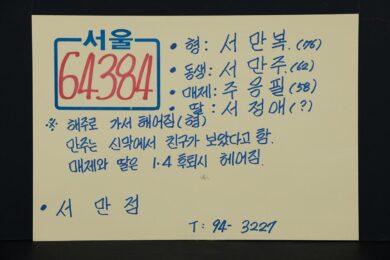 서울
64384
• 형: 서 만 복. (76)
• 동생: 서 만 주. (62)
• 매제: 주 응 필 (58)
• 딸: 서 정 애 (?)
※ 해주로 가서 헤어짐 (형)
만주는 신막에서 친구가 보았다고 함.
매제와 딸은 1·4 후퇴시 헤어짐.
• 서 만 점
T: 94-3227